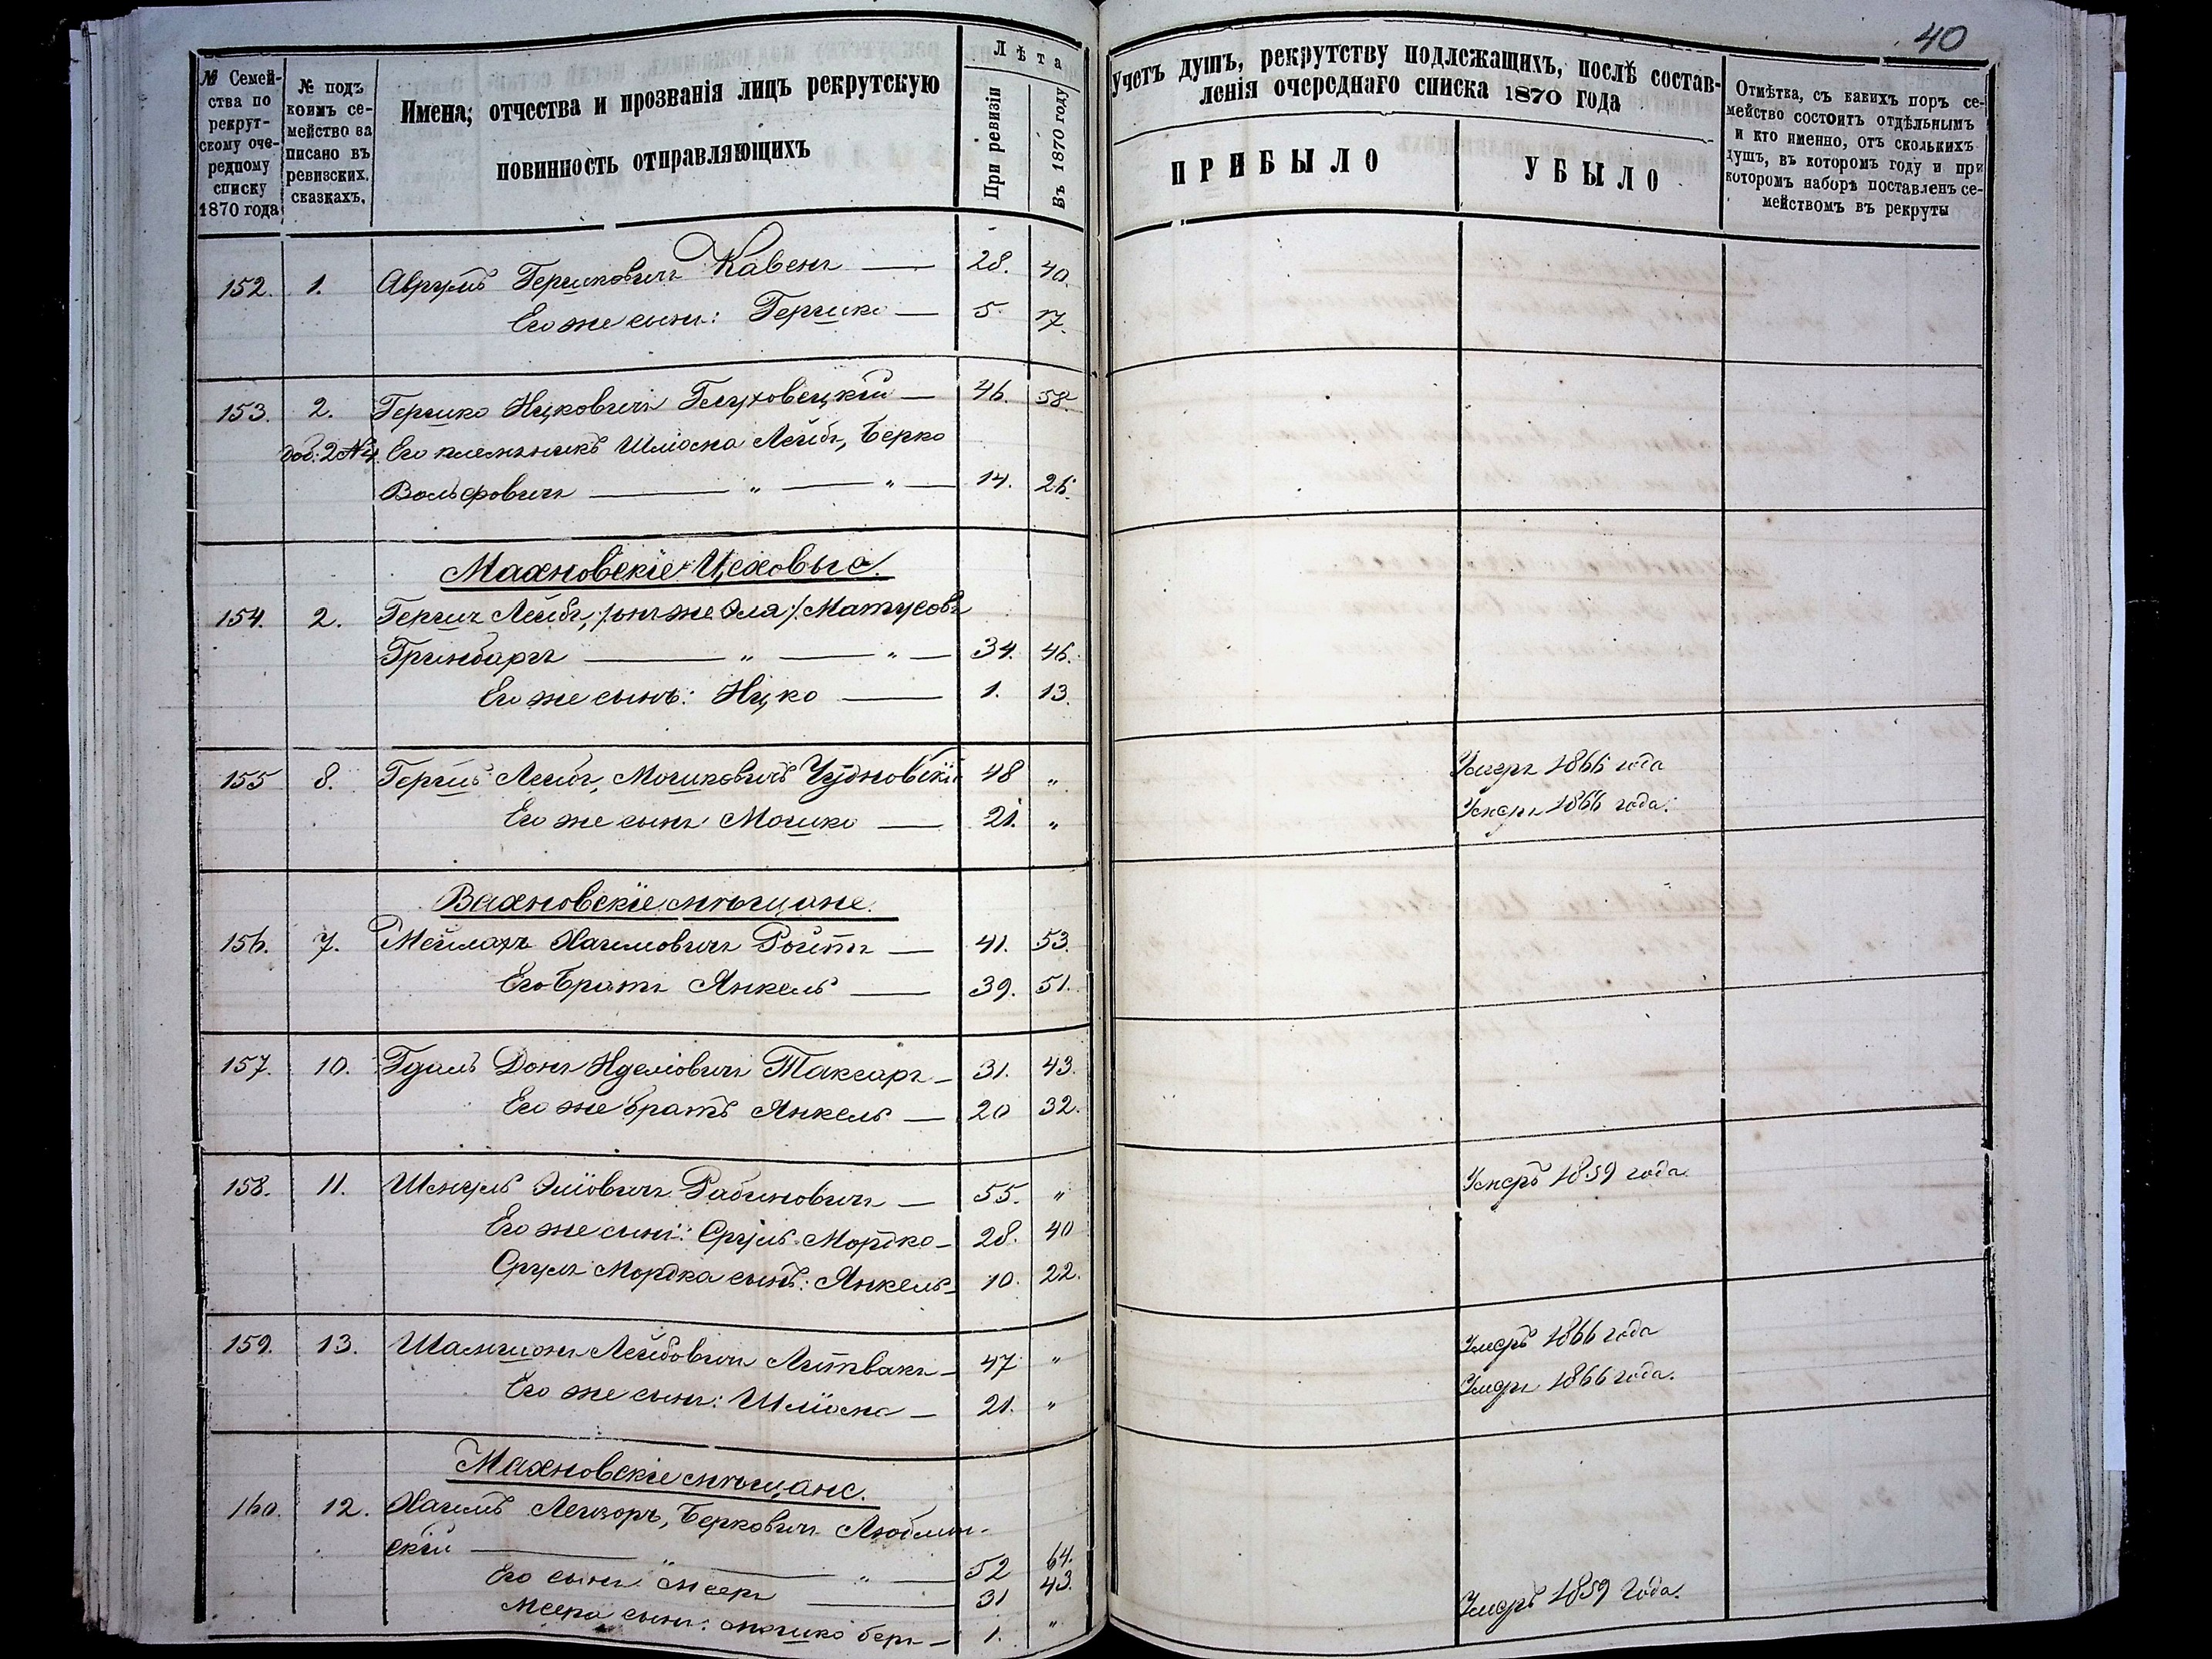 40
№ Семей-
ства по
рекрут-
скому оче-
редному
списку
1870 года
№ подъ
коимъ се-
мейство за
писано въ
ревизскихъ
сказкахъ.
Имена, отчества и прозванія лицъ рекрутскую
повинность отправляющихъ
Лѣта
При ревизіи
Въ 1870 году
Учетъ душъ, рекрутству подлежащихъ, послѣ состав-
ленія очереднаго списка 1870 года
ПРИБЫЛО
УБЫЛО
Отмѣтка, съ какихъ поръ се-
мейство состоитъ отдѣльнымъ
и кто именно, отъ сколькихъ
душъ, въ которомъ году и при
которомъ наборѣ поставленъ се-
мействомъ въ рекруты
152. 1. Аврумъ Гершковичъ Кавенъ — 28. 40.
Его же сынъ: Гершко — 5. 17.
153. 2. Гершко Ицковичъ Глуховецкій — 46. 58.
доб. 2 №4 Его племянникъ Шлiома Лейбъ, Берко
Вольфовичъ — „ — „ — 14. 26.
Махновскіе Цеховые.
154. 2. Гершъ Лейбъ, /:онъ же Эля:/ Матусовъ
Гринбаргъ — „ — „ — 34. 46.
Его же сынъ: Ицко — 1. 13.
155 8. Гершъ Лейбъ, Мошковичъ Чудновскій 48 „ Умеръ 1866 года
Его же сынъ Мошко — 21. „ Умеръ 1866 года.
Вахновскіе мѣщане.
156. 7. Мейлахъ Хаимовичъ Ройтъ — 41. 53.
Его братъ Янкель — 39. 51.
157. 10. Гдаль Донъ Иделіовичъ Таксаръ — 31. 43.
Его же братъ Янкель — 20 32.
158. 11. Эліовичъ Рабиновичъ — 55. „ Умеръ 1859 года.
Его же сынъ: Сруль Мордко — 28. 40
Сруля Мордка сынъ: Янкель — 10. 22.
159. 13. Шамшонъ Лейбовичъ Литвакъ — 47 „ Умеръ 1866 года
Его же сынъ: Шлiома — 21. „ Умеръ 1866 года.
Махновскіе мѣщане.
160. 12. Хаимъ Лейзоръ, Берковичъ Люблин-
скій — „ — „ — 52 64.
Его сынъ Мееръ — 31 43.
Меера сынъ: Мошко Беръ — 1. „ Умеръ 1859 года.